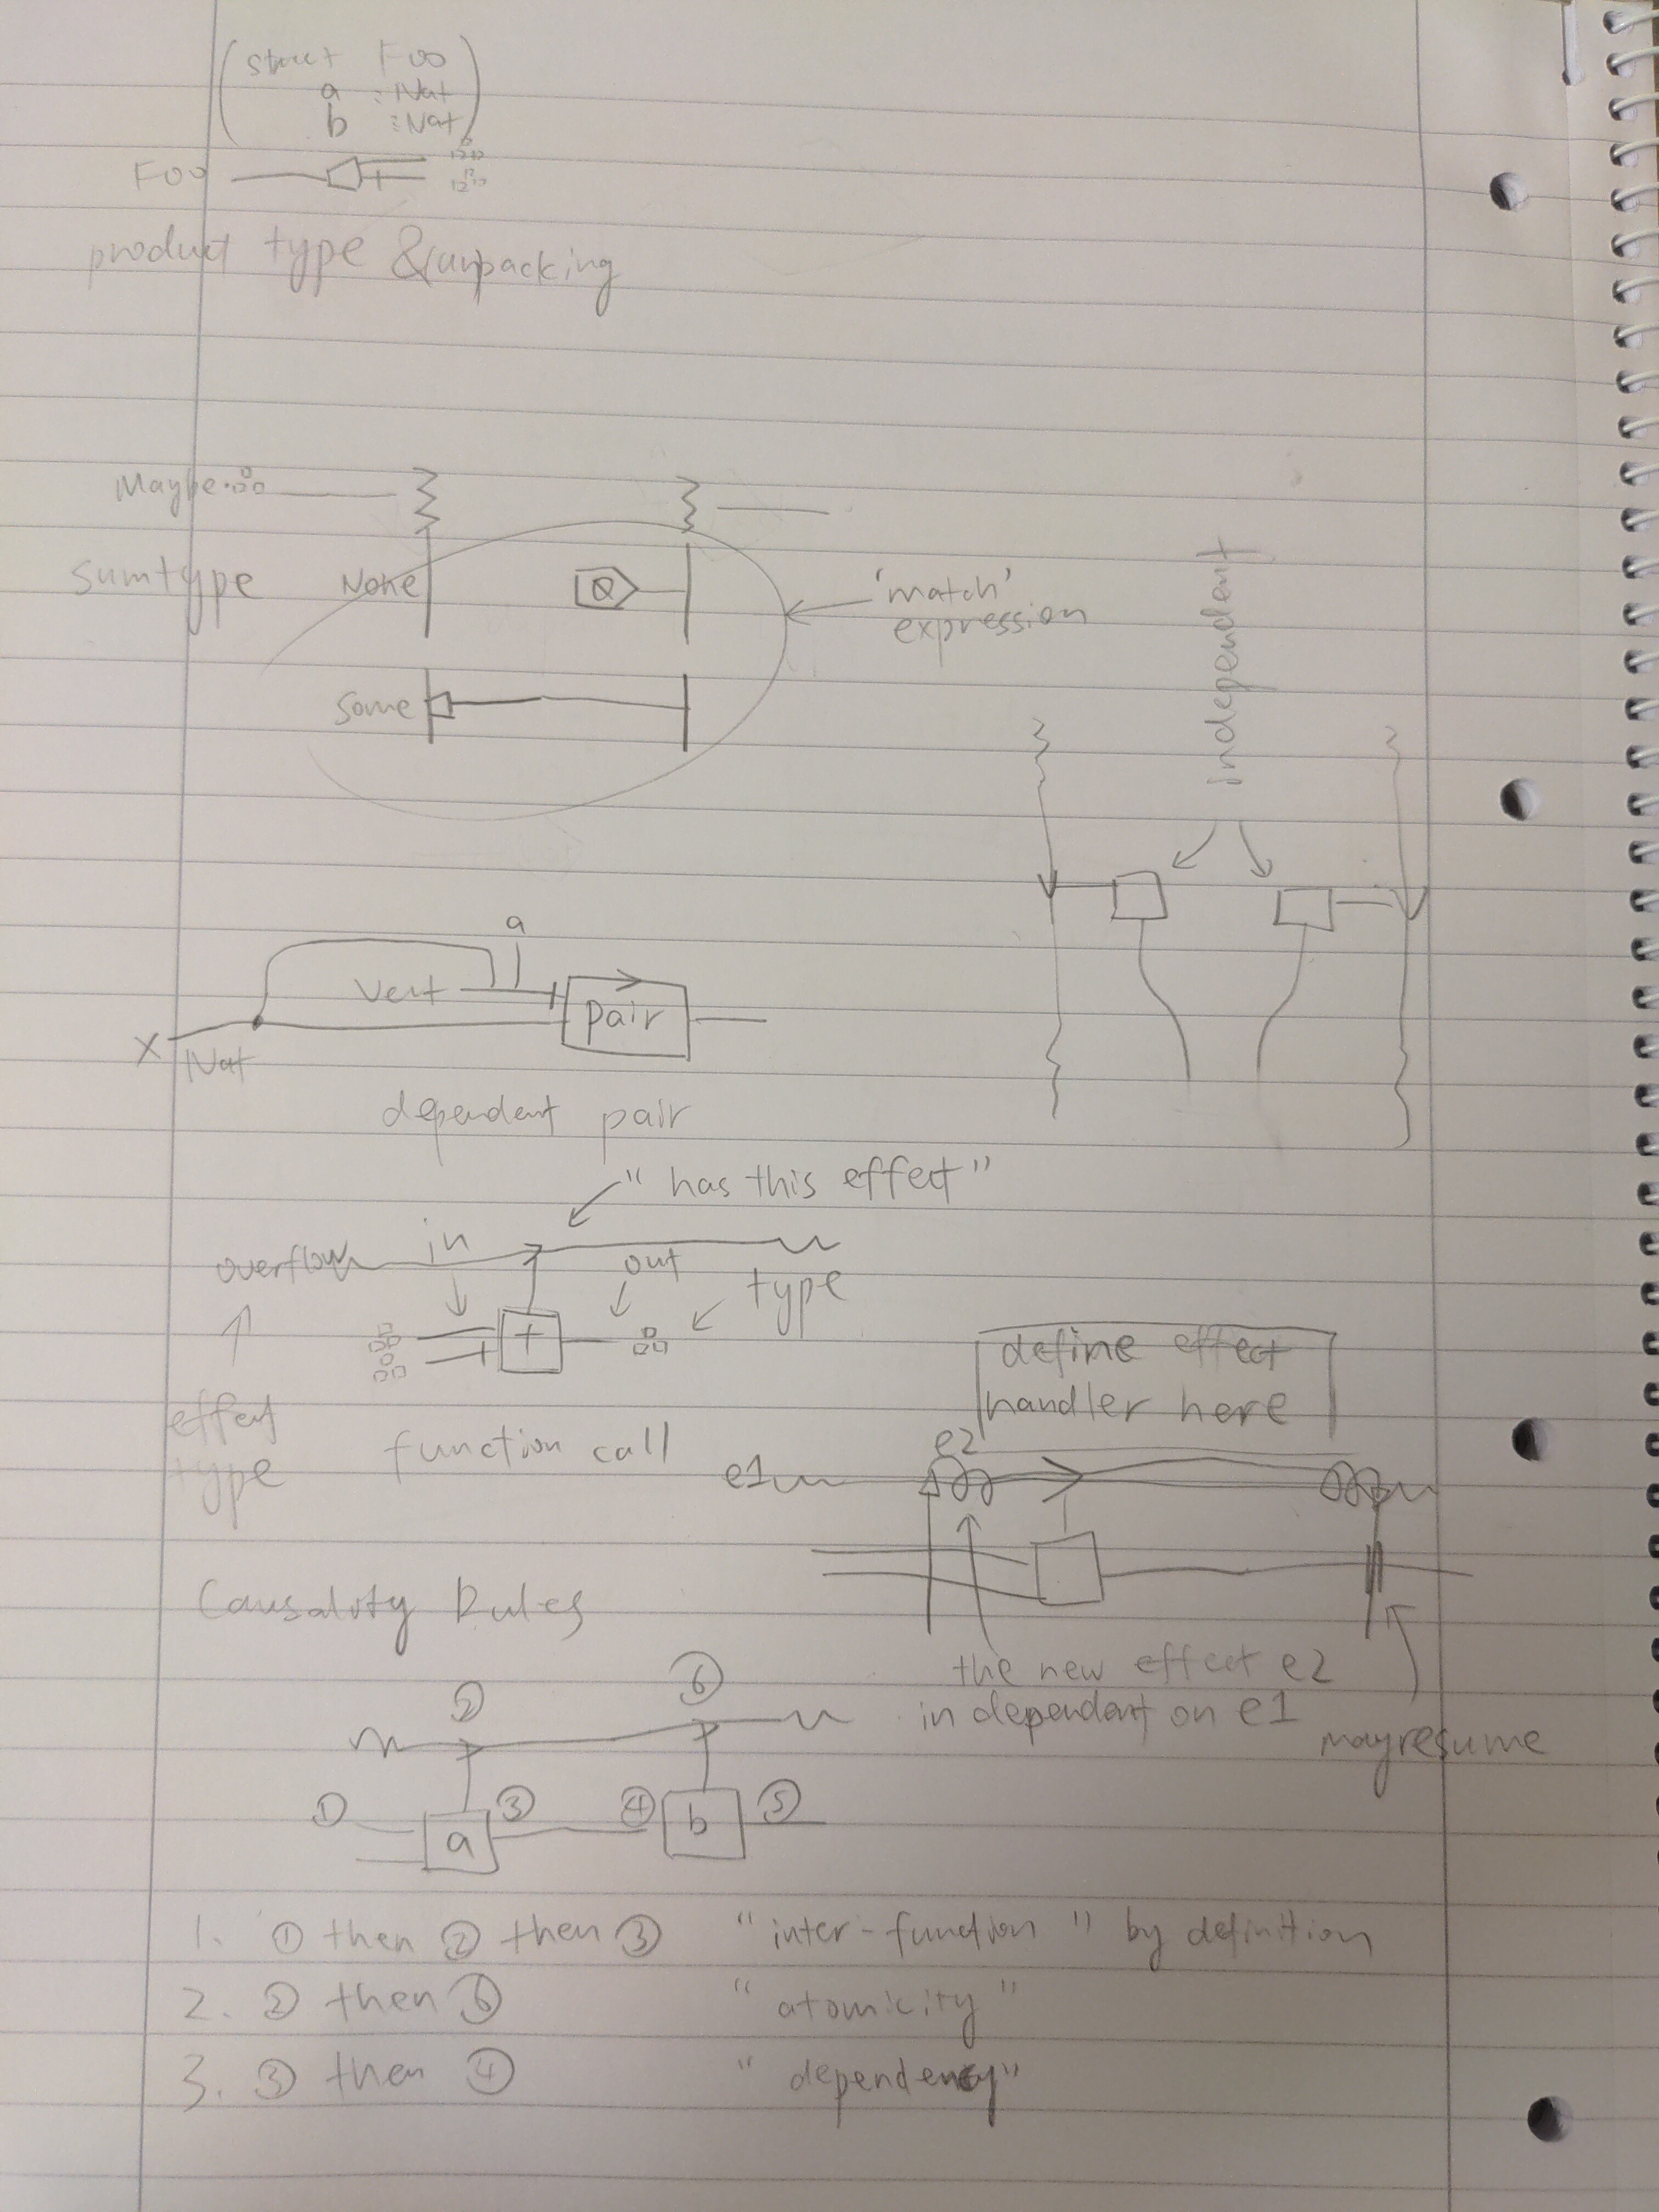 (struct Foo
a : Nat
b : Nat)
Foo
product type & unpacking
Maybe
sumtype
None
'match'
expression
Some
independent
a
Vect
Pair
X
Nat
dependent pair
"has this effect"
overflow
in
out
type
+
effect
type
function call
define effect
handler here
e1
e2
the new effect e2
independant on e1
may resume
Causality Rules
② ⑥
① ③ ④ ⑤
a b
1. ① then ② then ③ "inter-function" by definition
2. ② then ⑥ "atomicity"
3. ③ then ④ "dependency"